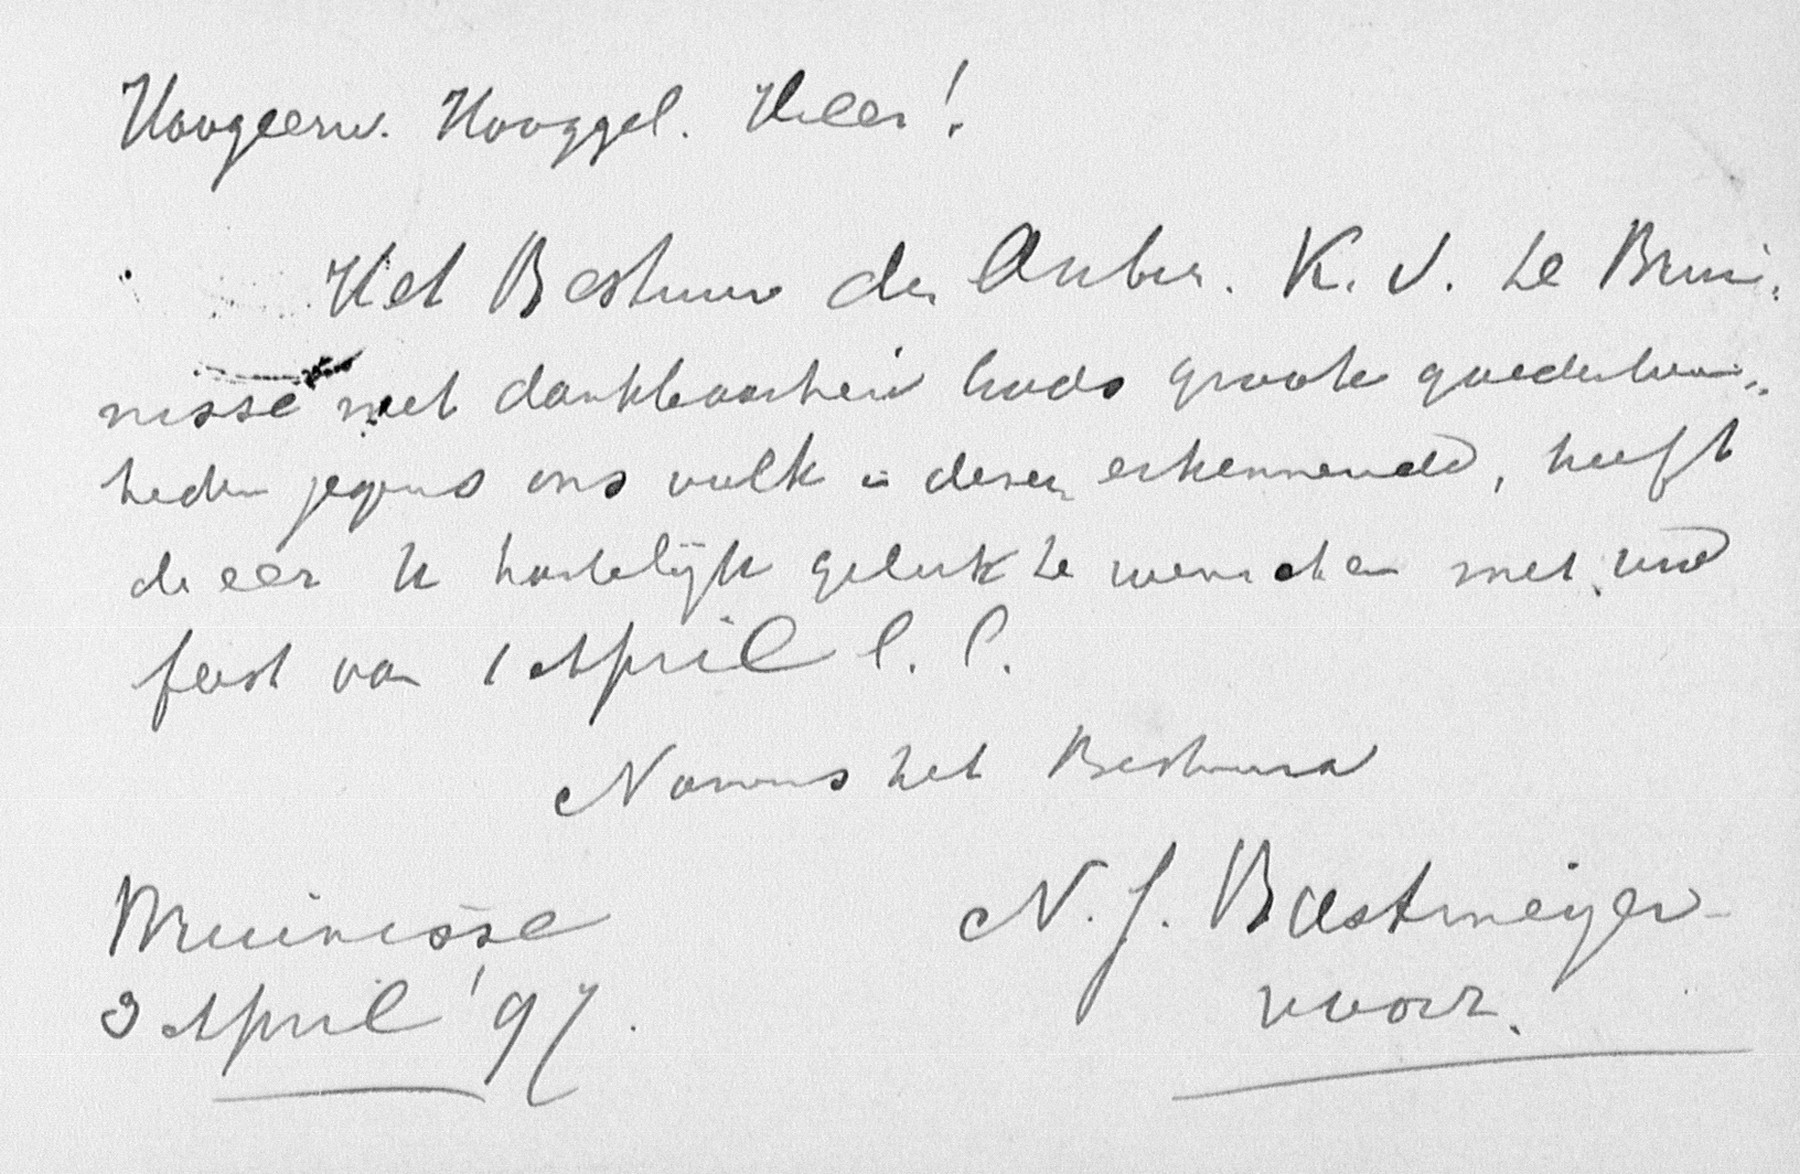 Hoogeerw. Hooggel. Heer!
Het Bestuur der Antirev. K. V. te Brui-
nisse met dankbaarheid Gods groote goedertieren-
heden jegens ons volk in dezen erkennend, heeft
de eer U hartelijk geluk te wenschen met uw
feest van 1 April l. l.
Namens het Bestuur
N. J. Bastmeijer
voorz.
Bruinisse
3 April '97.